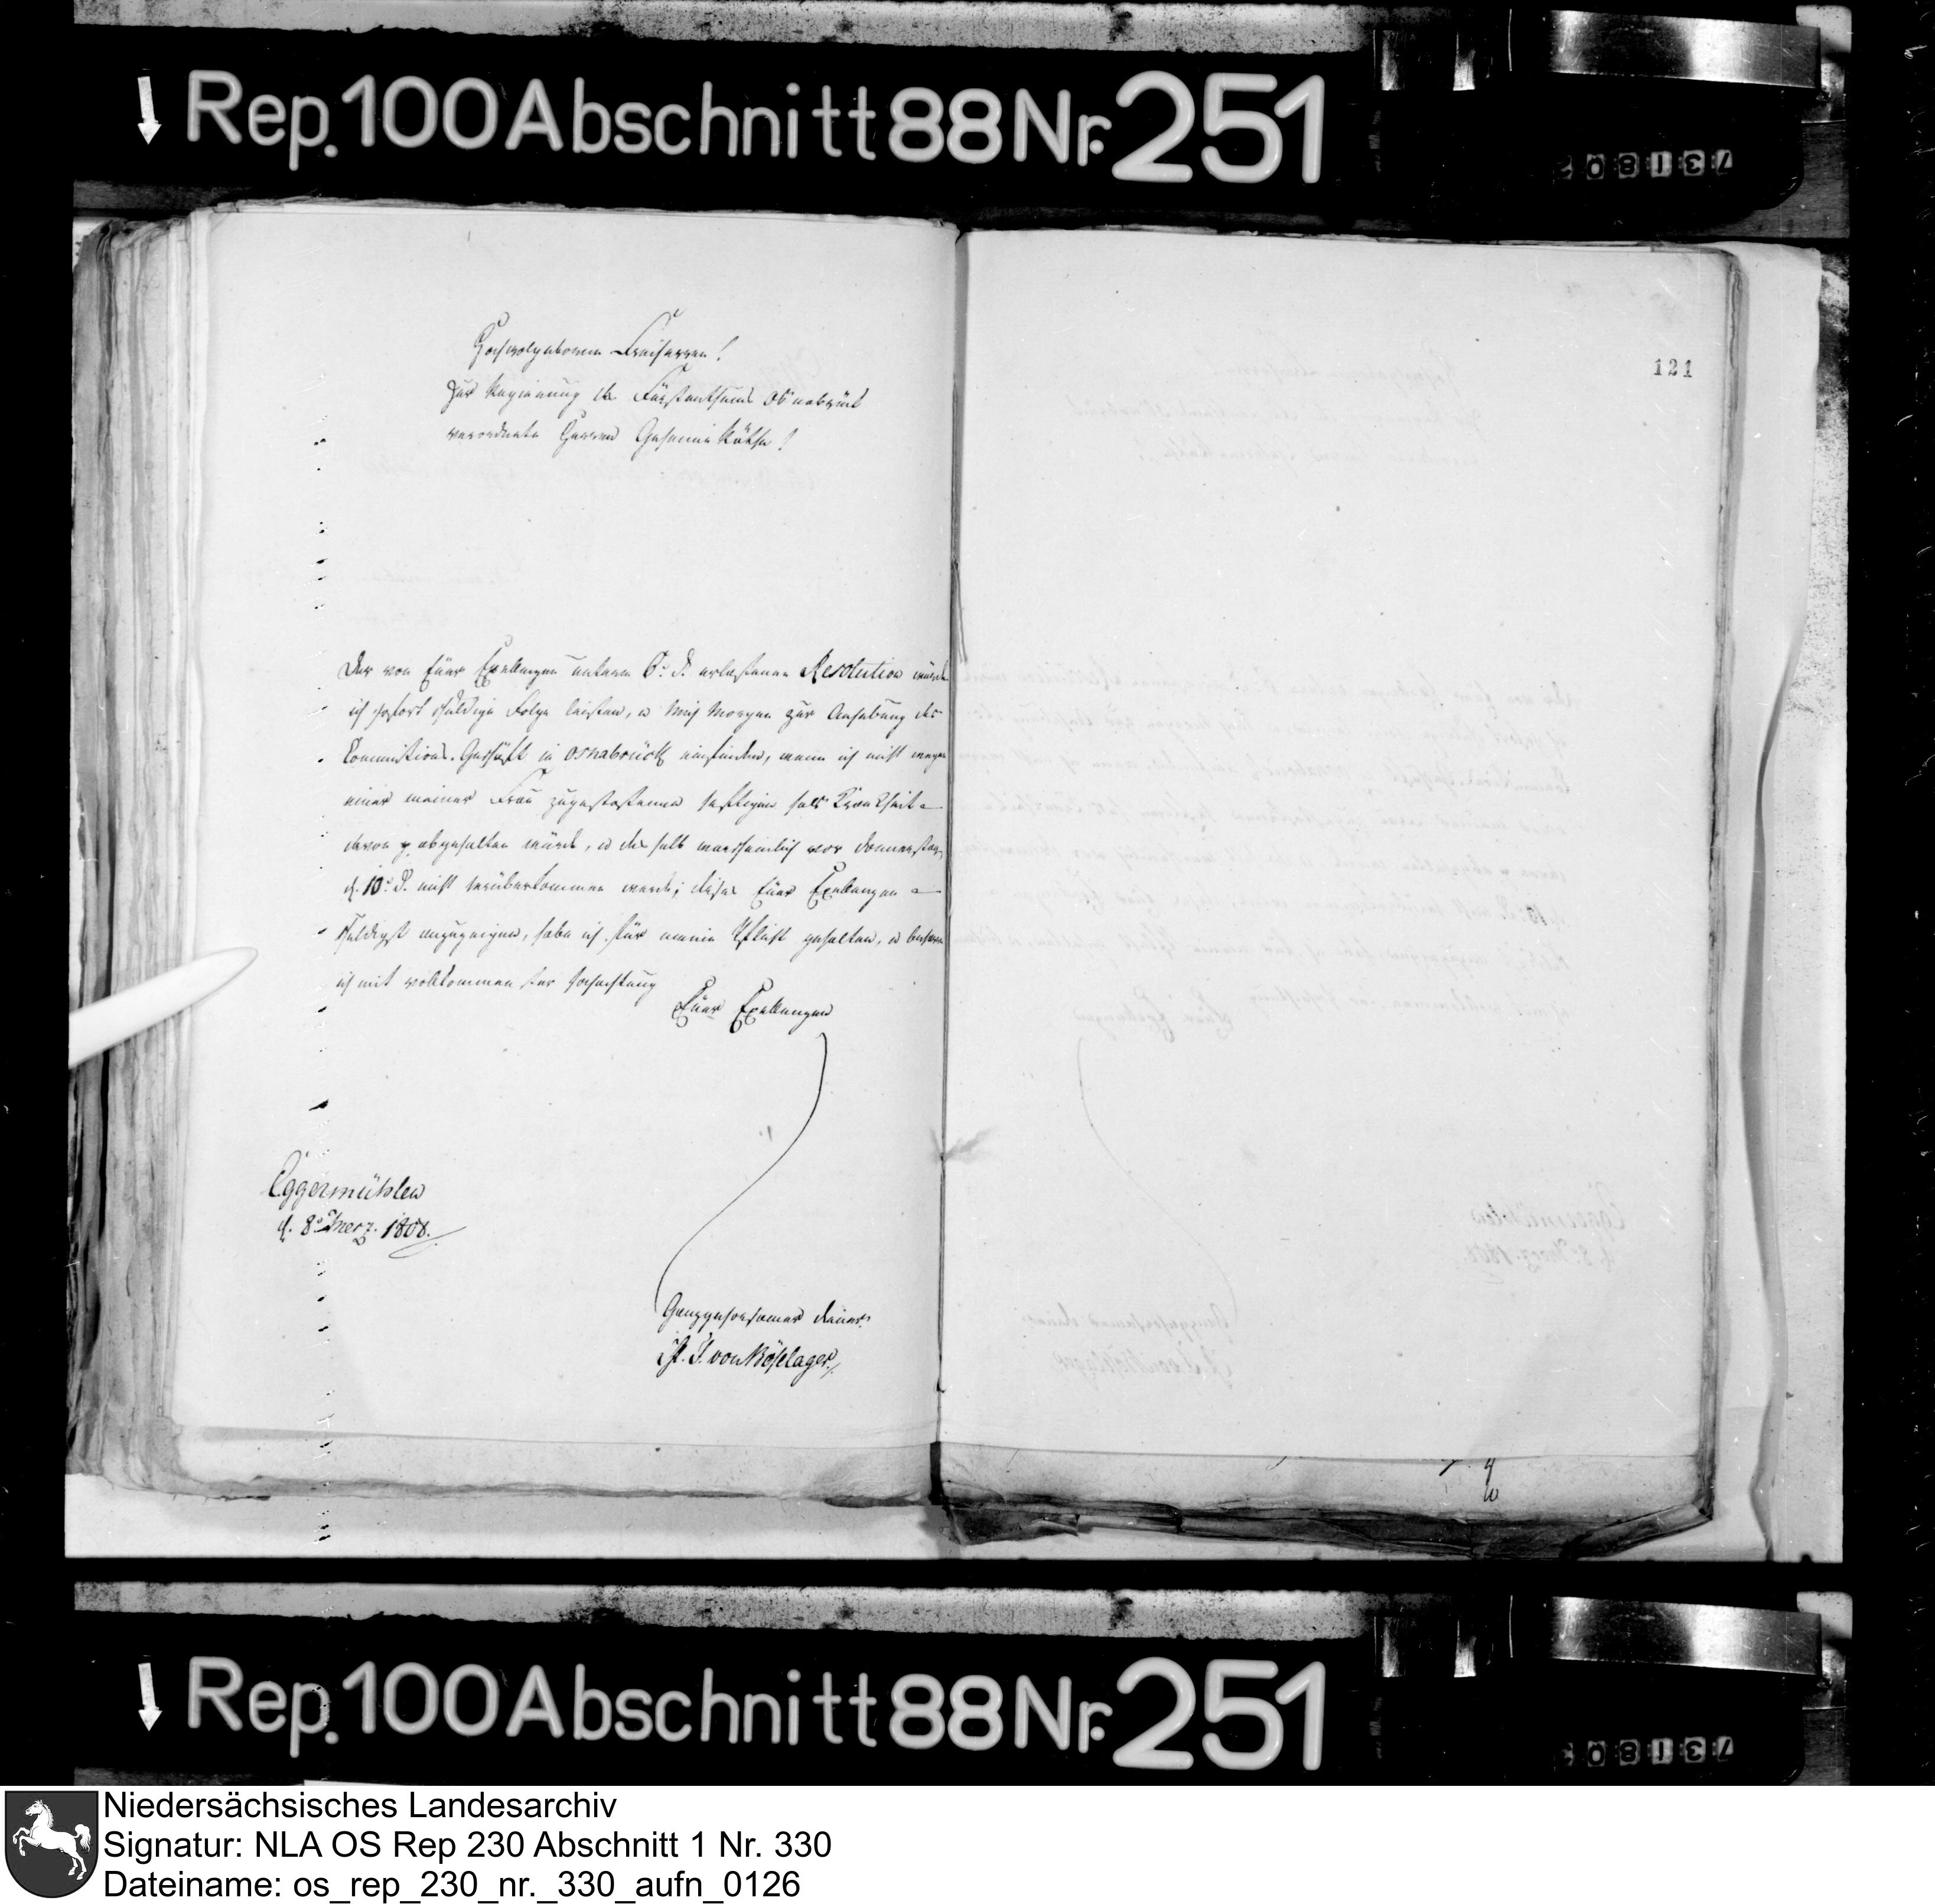 Rep. 100 Abschnitt 88 Nr. 251
731802
Hochwolgeborne Freiherren!
Zur Regierung des Fürstenthums Osnabrück
verordnete Herren Geheime Räthe!
121
Der von Euer Exellenzen unterm 6: d. erlassenen Resolution würde
ich sofort schuldige Folge leisten, u mich Morgen zur Anhebung des
Commissions-Geschäft in Osnabrück einfinden, wenn ich nicht wegen
einer meiner Frau zugestossenen heftigen Hals Krankheit
davon abgehalten würde, u deshalb warscheinlich vor Donnerstag
d. 10: d. nicht herüberkommen werde; dieses Euer Exellenzen
schuldigst anzuzeigen, habe ich für meine Pflicht gehalten, u beharre
ich mit vollkommenster Hochachtung
Euer Exellenzen
Eggermühlen
d. 8: Merz. 1808.
Ganzgehorsamer Diener
von Böselager
Rep. 100 Abschnitt 88 Nr. 251
Niedersächsisches Landesarchiv
Signatur: NLA OS Rep 230 Abschnitt 1 Nr. 330
Dateiname: os_rep_230_nr._330_aufn_0126